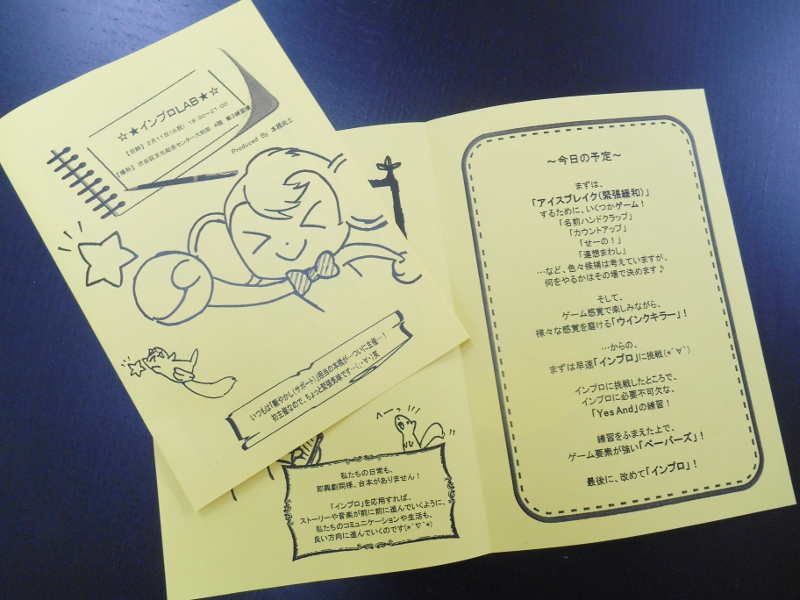 ☆★インプロLAB★☆
【日時】2月11日(火祝) 18:30~21:00
【場所】渋谷区文化総合センター大和田 4階 第3練習場
Produced By 本橋尚土
いつもは「賑やかし(サポート)」担当の本橋が…ついに主催…!
初主催なので、ちょっと緊張気味です…(;・∀・)笑
へーっ
私たちの日常も、
即興劇同様、台本がありません!
『インプロ』を応用すれば、
ストーリーや音楽が前に前に進んでいくように、
私たちのコミュニケーションや生活も、
良い方向に進んでいくのです(*´▽`*)
~今日の予定~
まずは、
「アイスブレイク(緊張緩和)」
するために、いくつかゲーム!
「名前ハンドクラップ」
「カウントアップ」
「せーの!」
「連想まわし」
…など、色々候補は考えていますが、
何をやるかはその場で決めます♪
そして、
ゲーム感覚で楽しみながら、
様々な感覚を磨ける「ウインクキラー」!
…からの、
まずは早速「インプロ」に挑戦(*´∀`)
インプロに挑戦したところで、
インプロに必要不可欠な、
「Yes And」の練習!
練習をふまえた上で、
ゲーム要素が強い「ペーパーズ」!
最後に、改めて「インプロ」!